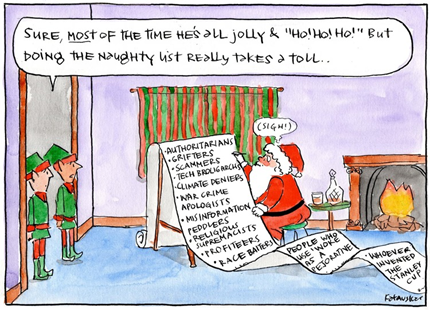 SURE, MOST OF THE TIME HE'S ALL JOLLY & "HO! HO! HO!" BUT
DOING THE NAUGHTY LIST REALLY TAKES A TOLL..
(SIGH!)
• AUTHORITARIANS
• GRIFTERS
• SCAMMERS
• TECH BROLIGARCHS
• CLIMATE DENIERS
• WAR CRIME
APOLOGISTS
• MISINFORMATION
PEDDLERS
• RELIGIOUS
SUPREMACISTS
• PROFITEERS
• RACE BAITERS
PEOPLE WHO
USE 'WOKE'
AS A
PEJORATIVE
• WHOEVER
INVENTED
THE
STANLEY
CUP
Fotausker